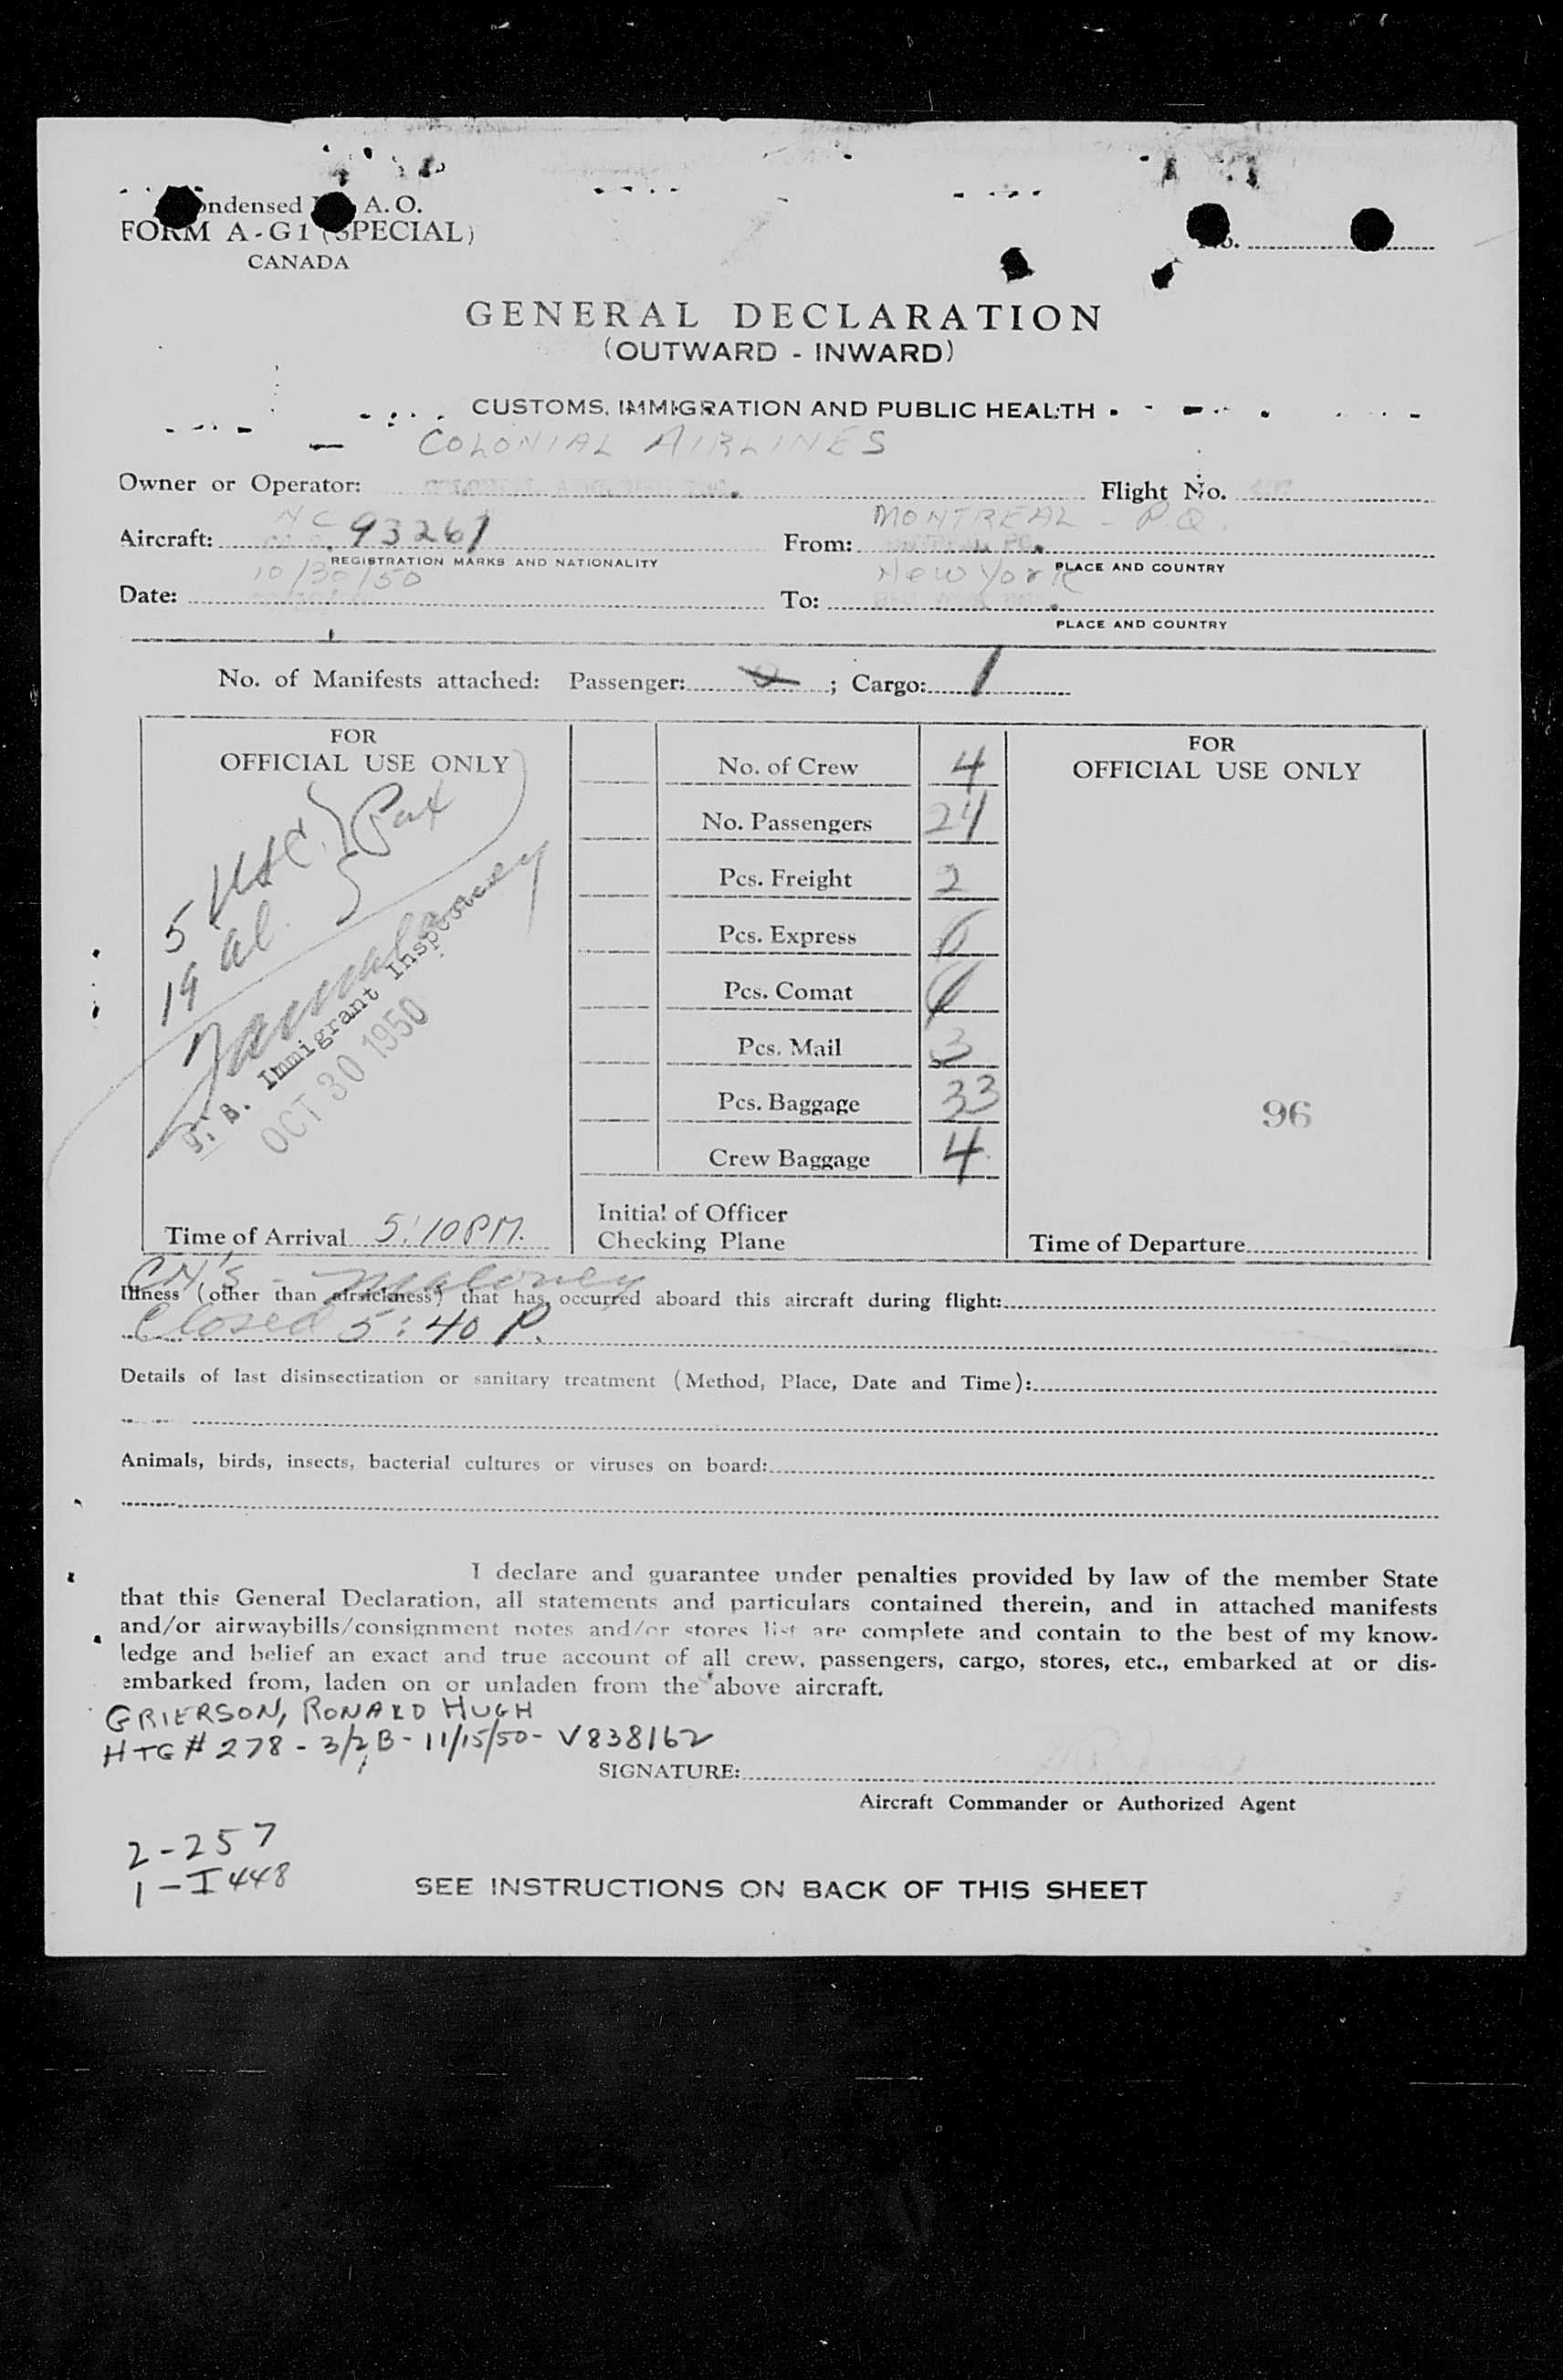 ondensed A. O.
FORM A-G1 (SPECIAL)
CANADA
No.
GENERAL DECLARATION
(OUTWARD - INWARD)
CUSTOMS, IMMIGRATION AND PUBLIC HEALTH
COLONIAL AIRLINES
Owner or Operator: Flight No.
NC 93261 MONTREAL - P.Q.
Aircraft: From:
REGISTRATION MARKS AND NATIONALITY PLACE AND COUNTRY
10/30/50 New York
Date: To:
PLACE AND COUNTRY
No. of Manifests attached: Passenger: ; Cargo: 1
FOR
OFFICIAL USE ONLY
5 USC. } Pax
19 al.
Immigrant Inspector
OCT 30 1950
Time of Arrival 5:10 PM.
No. of Crew 4
No. Passengers 24
Pcs. Freight 2
Pcs. Express
Pcs. Comat
Pcs. Mail 3
Pcs. Baggage 33
Crew Baggage 4
Initial of Officer
Checking Plane
FOR
OFFICIAL USE ONLY
96
Time of Departure
CH.'S - Maloney
Illness (other than airsickness) that has occurred aboard this aircraft during flight:
Closed 5:40 P.
Details of last disinsectization or sanitary treatment (Method, Place, Date and Time):
Animals, birds, insects, bacterial cultures or viruses on board:
I declare and guarantee under penalties provided by law of the member State
that this General Declaration, all statements and particulars contained therein, and in attached manifests
and/or airwaybills/consignment notes and/or stores list are complete and contain to the best of my know-
ledge and belief an exact and true account of all crew, passengers, cargo, stores, etc., embarked at or dis-
embarked from, laden on or unladen from the above aircraft.
GRIERSON, RONALD HUGH
HTG# 278 - 3/2B - 11/15/50 - V838162
SIGNATURE:
Aircraft Commander or Authorized Agent
2-257
1-I448
SEE INSTRUCTIONS ON BACK OF THIS SHEET